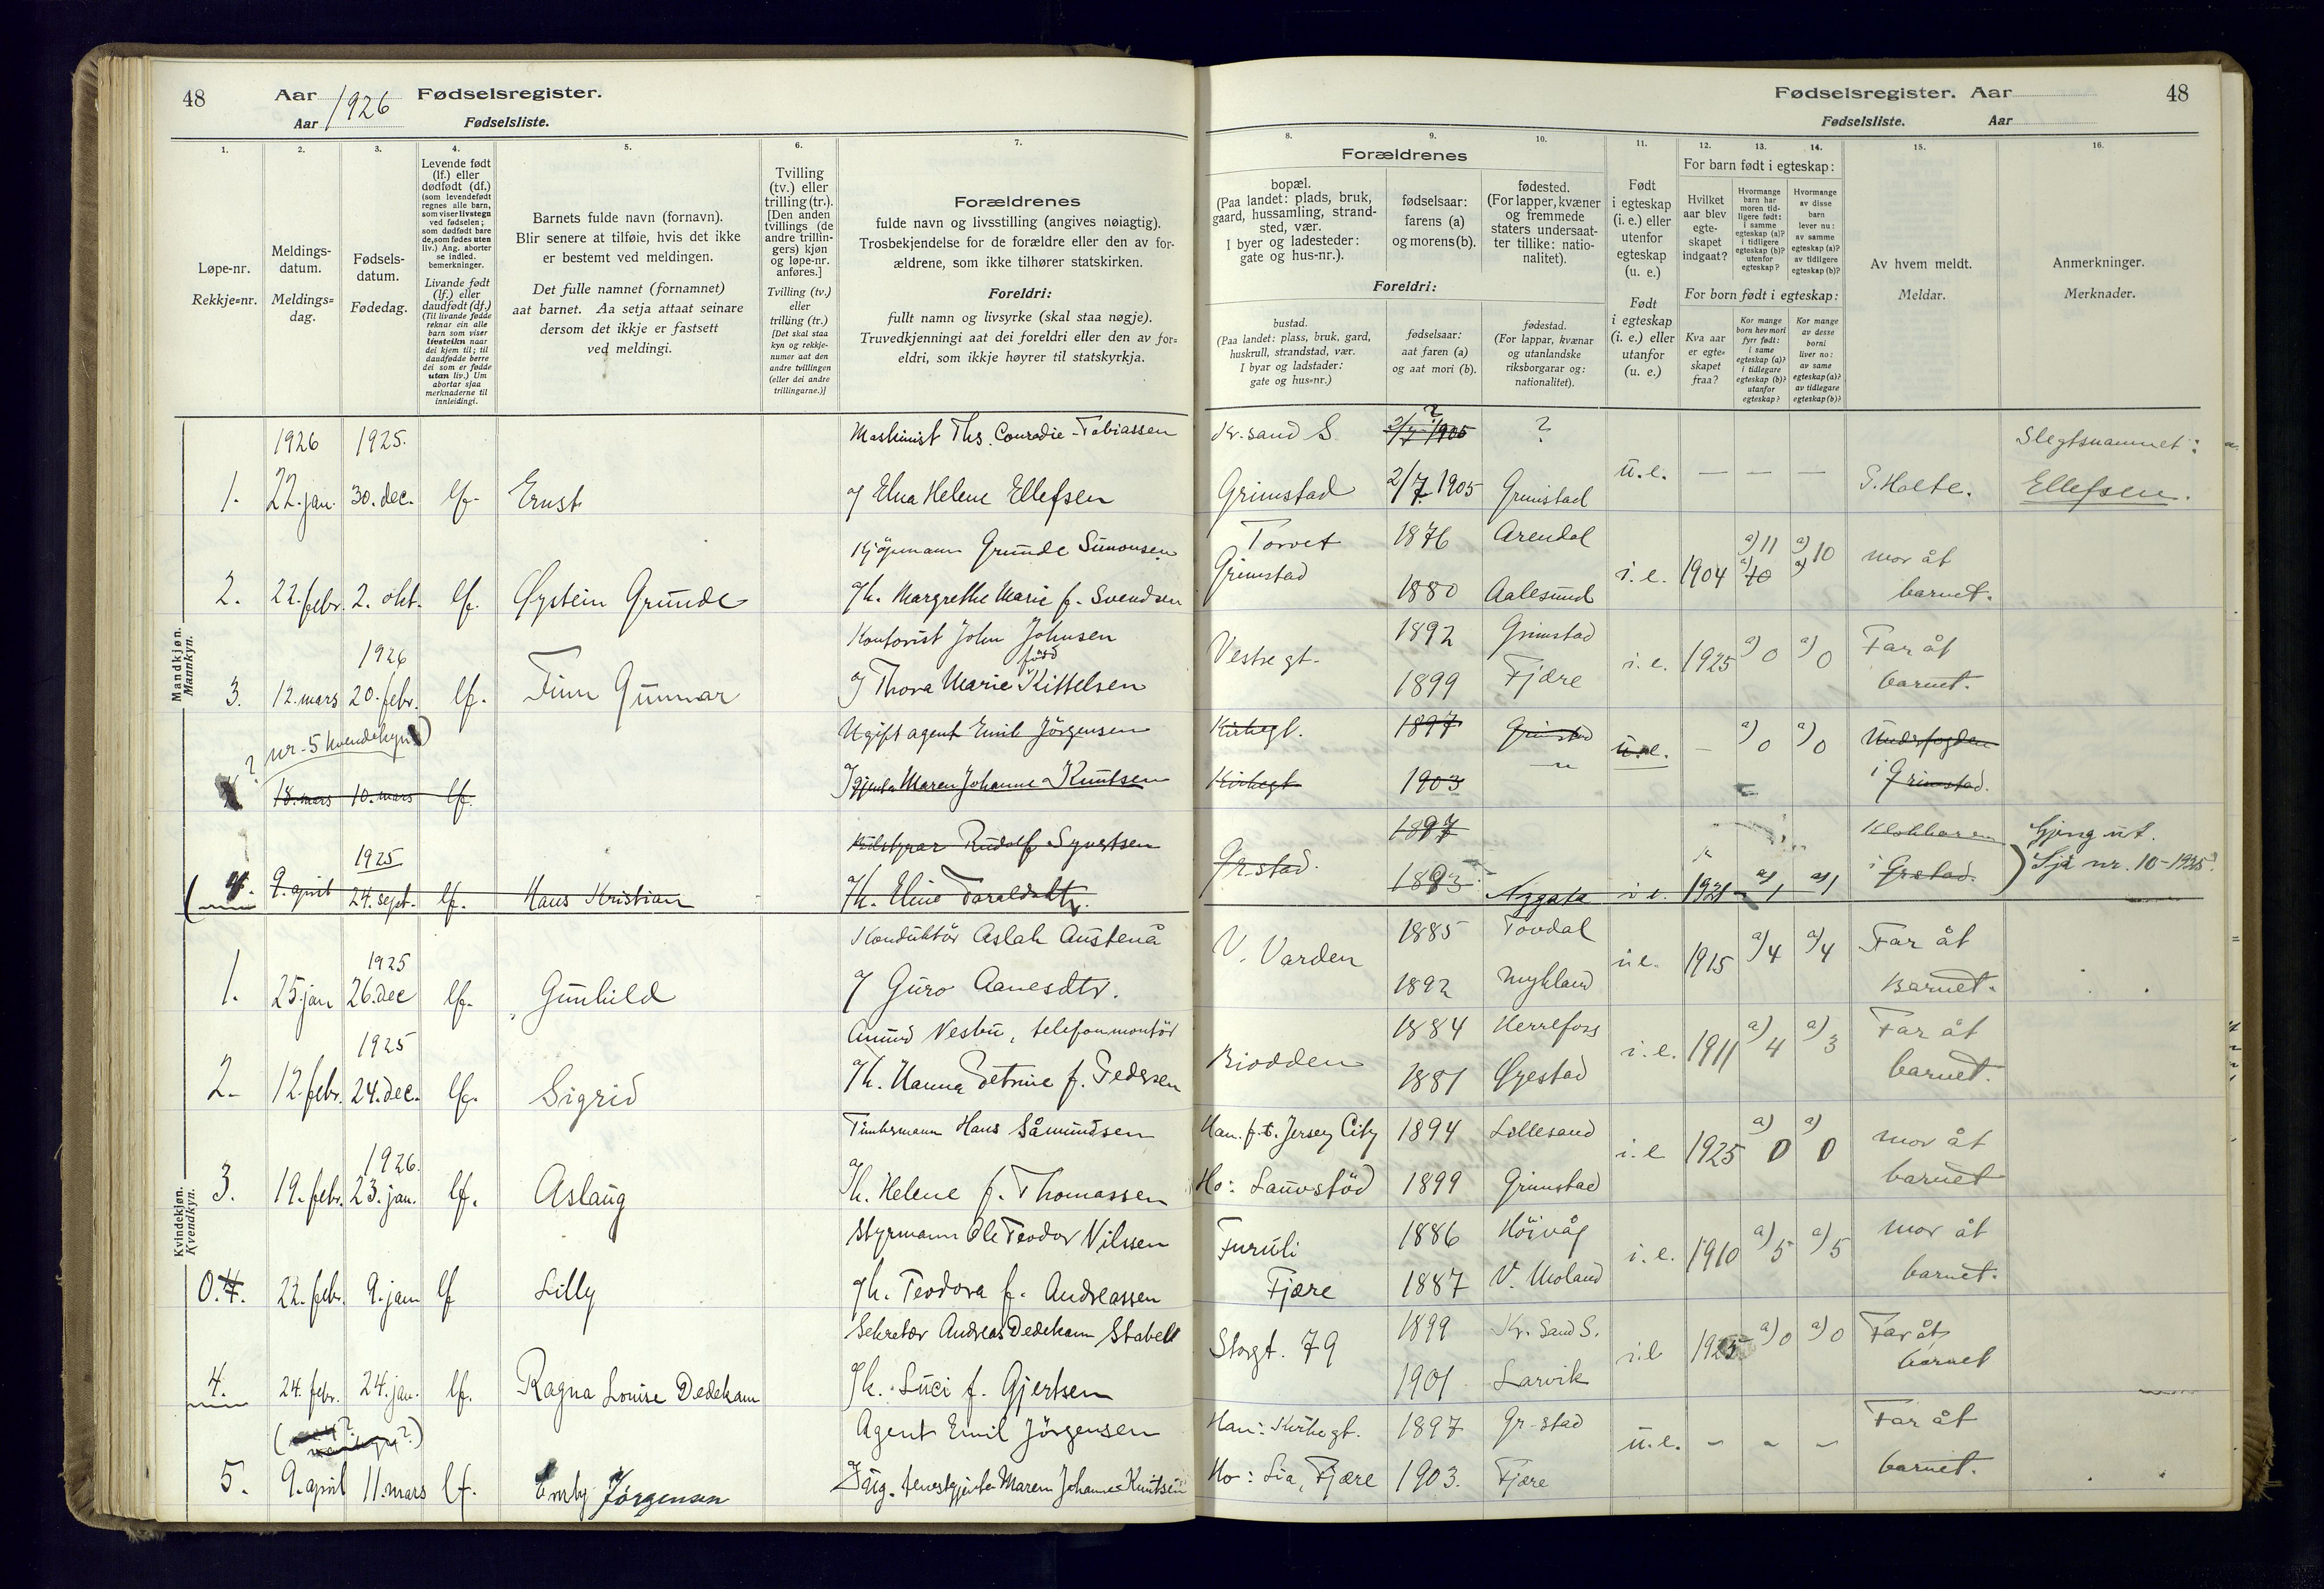 48 Aar 1926 Fødselsregister.
Aar Fødselsliste.
1. 2. 3. 4. 5. 6. 7.
Løpe-nr.
Rekkje=nr.
Meldings-
datum.
Meldings=
dag.
Fødsels-
datum.
Fødedag.
Levende født
(lf.) eller
dødfødt (df.)
(som levendefødt
regnes alle barn,
som viser livstegn
ved fødselen;
som dødfødt bare
de, som fødes uten
liv.) Ang. aborter
se indled.
bemerkninger.
Livande født
(lf.) eller
daudfødt (df.)
(Til livande fødde
reknar ein alle
barn som viser
livsteikn naar
dei kjem til; til
daudfødde berre
dei som er fødde
utan liv.) Um
abortar sjaa
merknaderne til
innleidingi.
Barnets fulde navn (fornavn).
Blir senere at tilføie, hvis det ikke
er bestemt ved meldingen.
Det fulle namnet (fornamnet)
aat barnet. Aa setja attaat seinare
dersom det ikkje er fastsett
ved meldingi.
Tvilling
(tv.) eller
trilling (tr.).
[Den anden
tvillings (de
andre trillin-
gers) kjøn
og løpe-nr.
anføres.]
Tvilling (tv.)
eller
trilling (tr.)
[Det skal staa
kyn og rekkje-
numer aat den
andre tvillingen
(eller dei andre
trillingarne.)]
Forældrenes
fulde navn og livsstilling (angives nøiagtig).
Trosbekjendelse for de forældre eller den av for-
ældrene, som ikke tilhører statskirken.
Foreldri:
fullt namn og livsyrke (skal staa nøgje).
Truvedkjenningi aat dei foreldri eller den av for=
eldri, som ikkje høyrer til statskyrkja.
Mandkjøn.
Mannkyn.
1926 1925. Maskinist Ths. Conradie-Tobiassen
1. 22. jan. 30. dec. lf. Ernst og Elna Helene Ellefsen
Kjøpmann Grunde Simonsen
2. 22. febr. 2. okt. lf. Øystein Grunde og h. Margrethe Marie f. Svendsen
1926 Kontorist John Johnsen
født
3. 12. mars 20. febr. lf. Finn Gunnar og Thora Marie Kittelsen
nr. 5 kvendekyn Ugift agent Emil Jörgensen
18. mars 10. mars lf. Maren Johanne Knutsen
1925 Rudolf Syvertsen
4. 9. april 24. sept. lf. Hans Kristian og h. Eline Taraldsdtr.
Kvindekjøn.
Kvendkyn.
1925 Konduktör Aslak Austenå
1. 25. jan 26. dec lf. Gunhild og Guro Aanesdtr.
1925 Amund Vesbu, telefonmontör
2. 12. febr. 24. dec. lf. Sigrid og h. Hanna Petrine f. Pedersen
1926. Timbermann Hans Såmundsen
3. 19. febr. 23. jan. lf. Aslaug og h. Helene f. Thomassen
Styrmann Ole Teodor Nilssen
0.4. 22. febr. 9. jan lf Lilly og h. Teodora f. Andreassen
Sekretær Andreas Dedekam Stabell
4. 24. febr. 24. jan. lf. Ragna Louise Dedekam og h. Luci f. Gjertsen
Agent Emil Jörgensen
5. 9. april 11. mars lf. Emly Jörgensen og ug. tenestgjenta Maren Johanne Knutsen
Fødselsregister. Aar 48
Fødselsliste. Aar
8. 9. 10. 11. 12. 13. 14. 15. 16.
Forældrenes
bopæl.
(Paa landet: plads, bruk,
gaard, hussamling, strand-
sted, vær.
I byer og ladesteder:
gate og hus-nr.).
fødselsaar:
farens (a)
og morens (b).
fødested.
(For lapper, kvæner
og fremmede
staters undersaat-
ter tillike: natio-
nalitet).
Foreldri:
bustad.
(Paa landet: plass, bruk, gard,
huskrull, strandstad, vær.
I byar og ladstader:
gate og hus=nr.)
fødselsaar:
aat faren (a)
og aat mori (b).
fødestad.
(For lappar, kvænar
og utanlandske
riksborgarar og:
nationalitet).
Født
i egteskap
(i. e.) eller
utenfor
egteskap
(u. e.)
Født
i egteskap
(i. e.) eller
utanfor
(u. e.)
For barn født i egteskap:
Hvilket
aar blev
egte-
skapet
indgaat?
Hvormange
barn har
moren tid-
ligere født:
i samme
egteskap (a)?
i tidligere
egteskap (b)?
utenfor
egteskap?
Hvormange
av disse
barn
lever nu:
av samme
egteskap (a)?
av tidligere
egteskap (b)?
For born født i egteskap:
Kva aar
er egte=
skapet
fraa?
Kor mange
born hev mori
fyrr født:
i same
egteskap (a)?
i tidlegare
egteskap (b)?
utanfor
egteskap?
Kor mange
av desse
borni
liver no:
av same
egteskap (a)?
av tidlegare
egteskap (b)?
Av hvem meldt.
Meldar.
Anmerkninger.
Merknader.
Kr.sand S. 2/7 1905 ? ? Slegtsnamnet:
Grimstad 2/7 1905 Grimstad u.e. — — — S. Holte. Ellefsen.
Torvet 1876 Arendal a) 11 a) 10 mor åt
Grimstad 1880 Aalesund i.e. 1904 a) 10 a) barnet.
Vestregt. 1892 Grimstad i.e. 1925 a) 0 a) 0 Far åt
1899 Fjære barnet.
Kirkegt. 1897 Grimstad u.e. — a) 0 a) 0 Underfogden
Kirkegt 1903 — " — i Grimstad.
1897 Klokkaren Gjeng ut.
Gr.stad. 1893 Nygata i e. 1921 a) 1 a) 1 i Gr.stad. Sjå nr. 10-1925.
V. Varden 1885 Tovdal i.e. 1915 a) 4 a) 4 Far åt
1892 Mykland Barnet.
Biodden 1884 Herrefoss i.e. 1911 a) 4 a) 3 Far åt
1881 Øyestad barnet.
Han. f.t. Jersey City 1894 Lillesand i.e 1925 a) 0 a) 0 mor åt
Ho: Lauvstöd 1899 Grimstad barnet
Furuli 1886 Höivåg i.e. 1910 a) 5 a) 5 mor åt
Fjære 1887 V. Moland barnet.
Storgt. 79 1899 Kr. Sand S. i.e 1925 a) 0 a) 0 Far åt
1901 Larvik barnet
Han: Kirkegt. 1897 Gr-stad u.e. – – – Far åt
Ho: Lia, Fjære 1903. Fjære barnet.